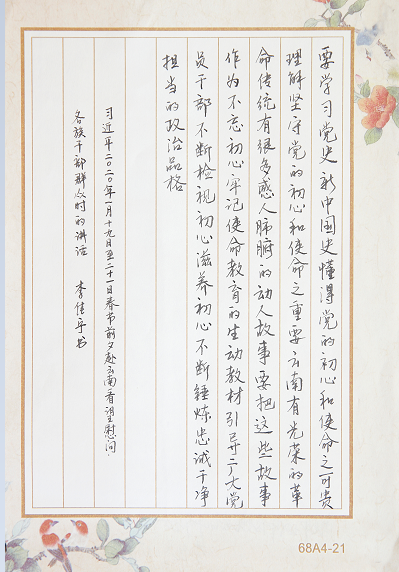 要学习党史新中国史懂得党的初心和使命之可贵
理解坚守党的初心和使命之重要云南有光荣的革
命传统有很多感人肺腑的动人故事要把这些故事
作为不忘初心牢记使命教育的生动教材引导广大党
员干部不断检视初心滋养初心不断锤炼忠诚干净
担当的政治品格
习近平二〇二〇年一月十九日至二十一日春节前夕赴云南看望慰问
各族干部群众时的讲话 李佳平书
68A4-21